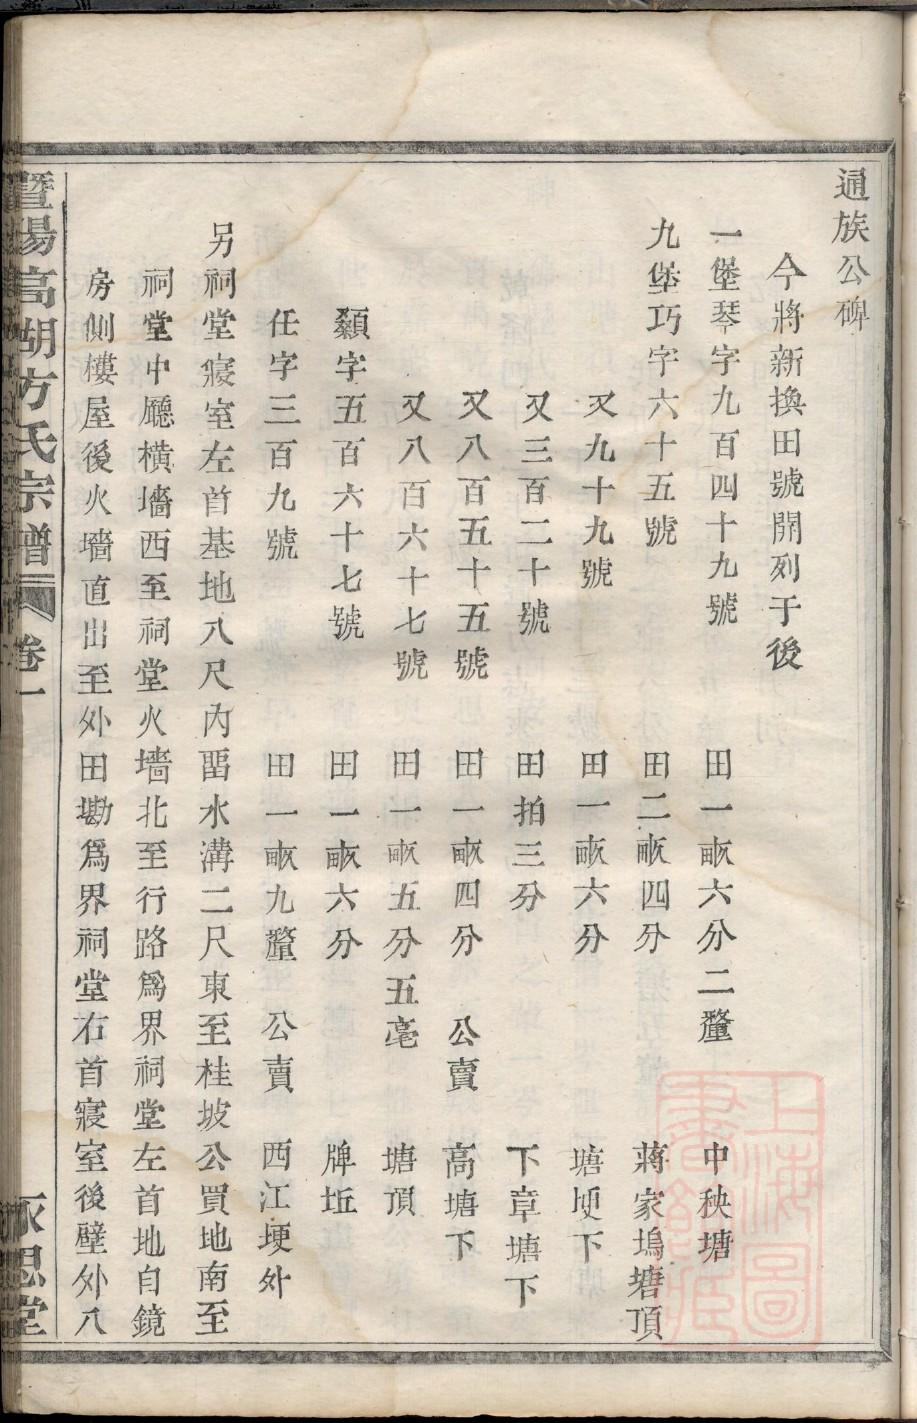 通族公碑
今將新換田號開列于後
一堡琴字九百四十九號 田一畝六分二釐 中秧塘
九堡巧字六十五號 田二畝四分 蔣家塢塘頂
又九十九號 田一畝六分 塘埂下
又三百二十號 田拍三分 下章塘下
又八百五十五號 田一畝四分 公賣 高塘下
又八百六十七號 田一畝五分五毫 塘頂
纇字五百六十七號 田一畝六分 牌坵
任字三百九號 田一畝九釐 公賣 西江埂外
另祠堂寢室左首基地八尺內畱水溝二尺東至桂坡公買地南至
祠堂中廳橫墻西至祠堂火墻北至行路爲界祠堂左首地自鏡
房側樓屋後火墻直出至外田墈爲界祠堂右首寢室後壁外八
暨陽高湖方氏宗譜 卷一 永思堂
上海圖書館藏